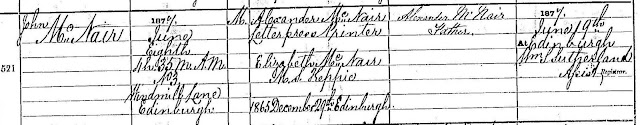 John
McNair
521
1877.
June
Eighth
4h 35m A.M.
No 3
Windmill Lane
Edinburgh
M.
Alexander McNair
Letterpress Printer
Elizabeth McNair
M.S. Heppie
1865 December 29th Edinburgh.
Alexander McNair
Father.
1877.
June 19th
At Edinburgh
Wm. J. Sutherland
Assist. Registrar.